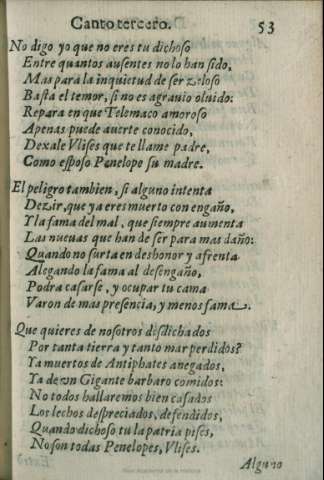 Canto tercero. 53
No digo yo que no eres tu dichoso
Entre quantos ausentes no lo han sido,
Mas para la inquietud de ser zeloso
Basta el temor, si no es agrauio oluido:
Repara en que Telemaco amoroso
Apenas puede auerte conocido,
Dexale Vlises que te llame padre,
Como esposo Penelope su madre.
El peligro tambien, si alguno intenta
Dezir, que ya eres muerto con engaño,
Y la fama del mal, que siempre aumenta
Las nueuas que han de ser para mas daño:
Quando no surta en deshonor y afrenta
Alegando la fama al desengaño,
Podra casarse, y ocupar tu cama
Varon de mas presencia, y menos fama.
Que quieres de nosotros disdichados
Por tanta tierra y tanto mar perdidos?
Ya muertos de Antiphates anegados,
Ya de vn Gigante barbaro comidos:
No todos hallaremos bien casados
Los lechos despreciados, defendidos,
Quando dichoso tu la patria pises,
No son todas Penelopes, Vlises.
Alguno
Real Academia de la Historia